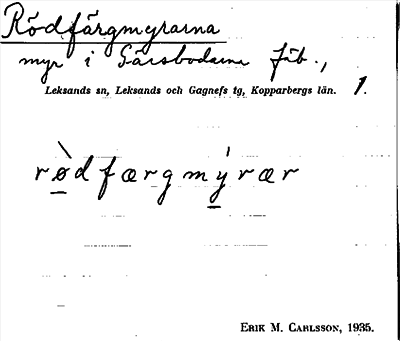 Rödfärgmyrarna
myr i Gärsbodarna fäb.,
Leksands sn, Leksands och Gagnefs tg, Kopparbergs län. 1.
rø̀dfærgmýrær
ERIK M. CARLSSON, 1935.